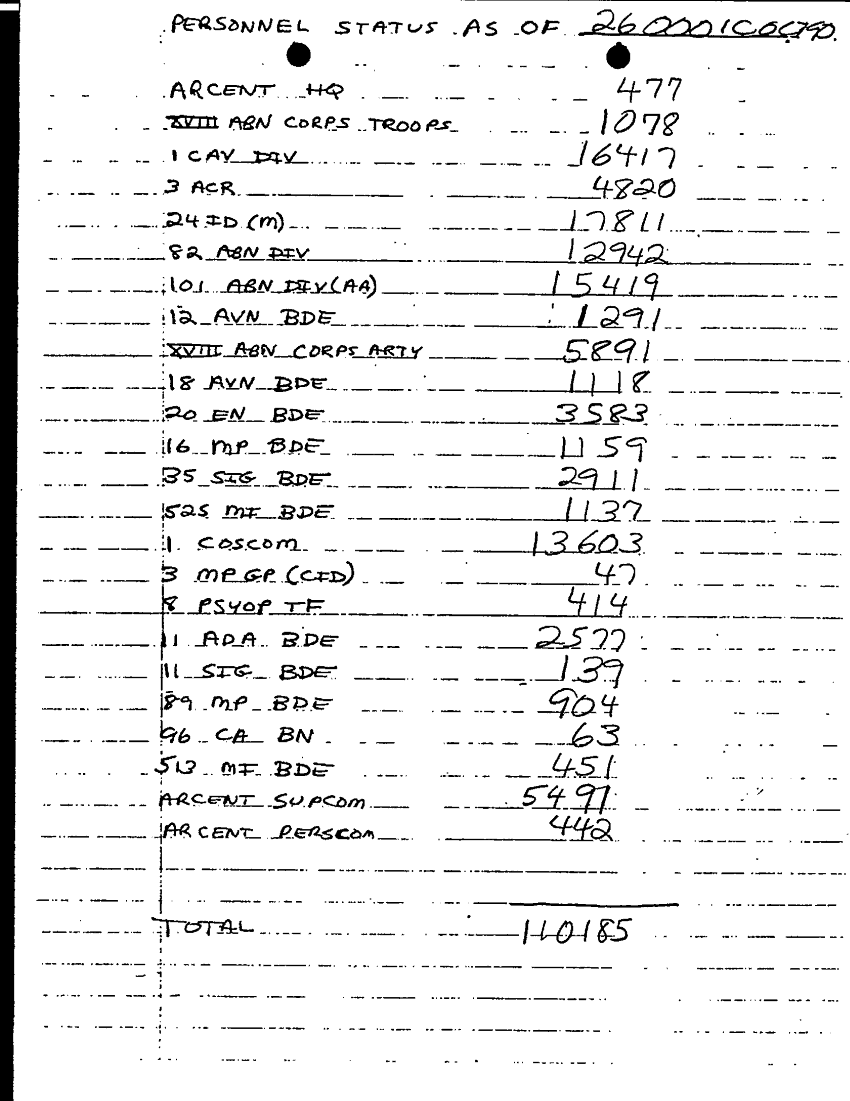 PERSONNEL STATUS AS OF 260001COCT90.
ARCENT HQ 477
XVIII ABN CORPS TROOPS 1078
1 CAV DIV 16417
3 ACR 4820
24 ID (M) 17811
82 ABN DIV 12942
101 ABN DIV (AA) 15419
12 AVN BDE 1291
XVIII ABN CORPS ARTY 5891
18 AVN BDE 1118
20 EN BDE 3583
16 MP BDE 1159
35 SIG BDE 2911
525 MI BDE 1137
1 COSCOM 13603
3 MP GP (CID) 47
8 PSYOP TF 414
11 ADA BDE 2577
11 SIG BDE 139
89 MP BDE 904
96 CA BN 63
513 MI BDE 451
ARCENT SUPCOM 5491
ARCENT PERSCOM 442
TOTAL 110185